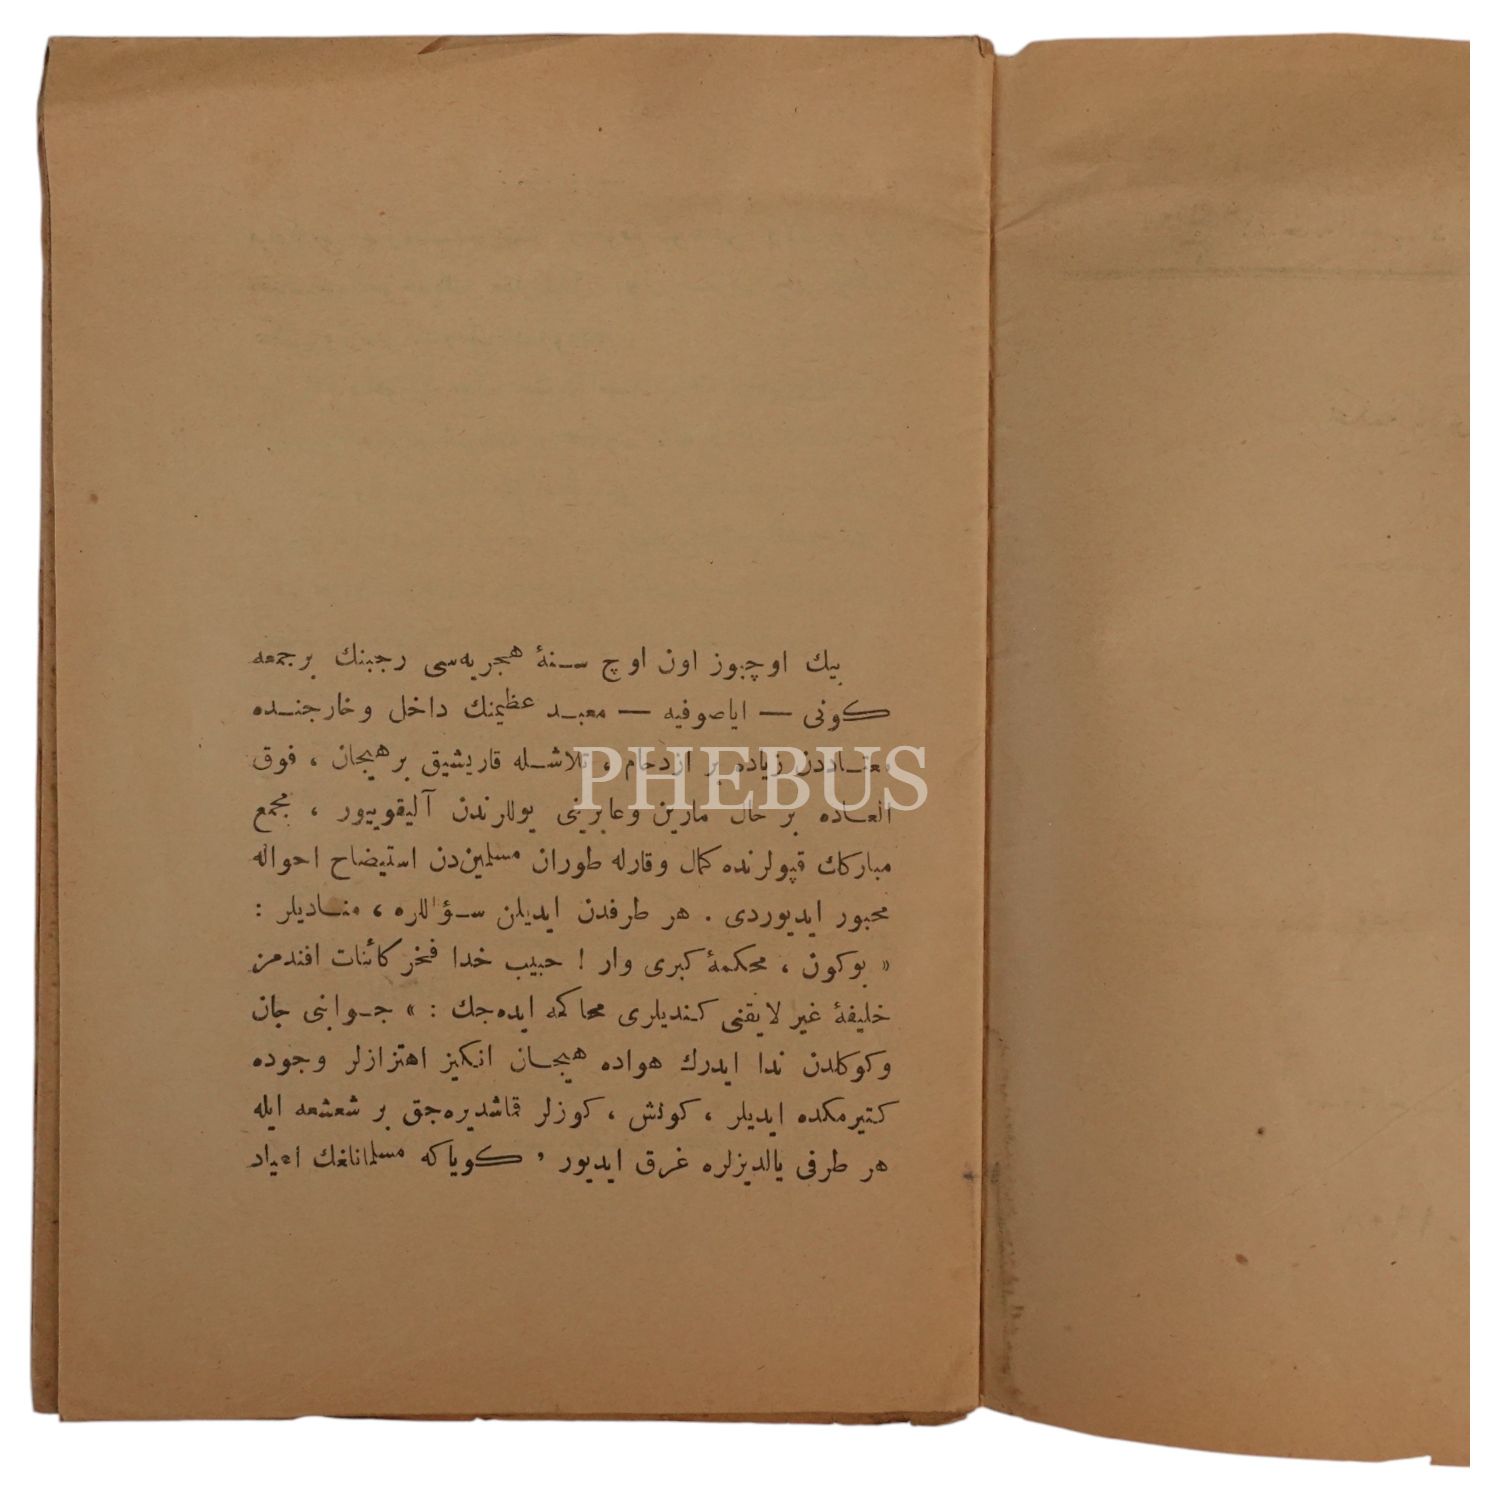 بيك اوچيوز اون اوچ سـنهٔ هجريه‌سى رجبنك بر جمعه
كونى — اياصوفيه — معبـد عظيمنك داخل و خارجنـده
معتـاددن زياده بر ازدحام ، تلاشـله قاريشيق بر هيجان ، فوق
العـاده بر حال مارين و عابرينى يوللرندن آليقوييور ، مجمع
مباركك قپولرنده كمال وقارله طوران مسلمين‌دن استيضاح احواله
مجبور ايديوردى . هر طرفدن ايديلن سـؤاللره ، منـاديلر :
« بوكون ، محكمهٔ كبرى وار ! حبيب خدا فخر كائنات افندمز
خليفهٔ غير لايقنى كـنديلرى محاكمه ايده‌جك : » جـوابنى جان
و كوكلدن ندا ايدرك هواده هيجـان انكيز اهتزازلر وجوده
كتيرمكده ايديلر ، كونش ، كوزلر قماشديره‌جق بر شعشعه ايله
هر طرفى يالديزلره غرق ايديور ، كويا كه مسلمانلغك اعياد
PHEBUS